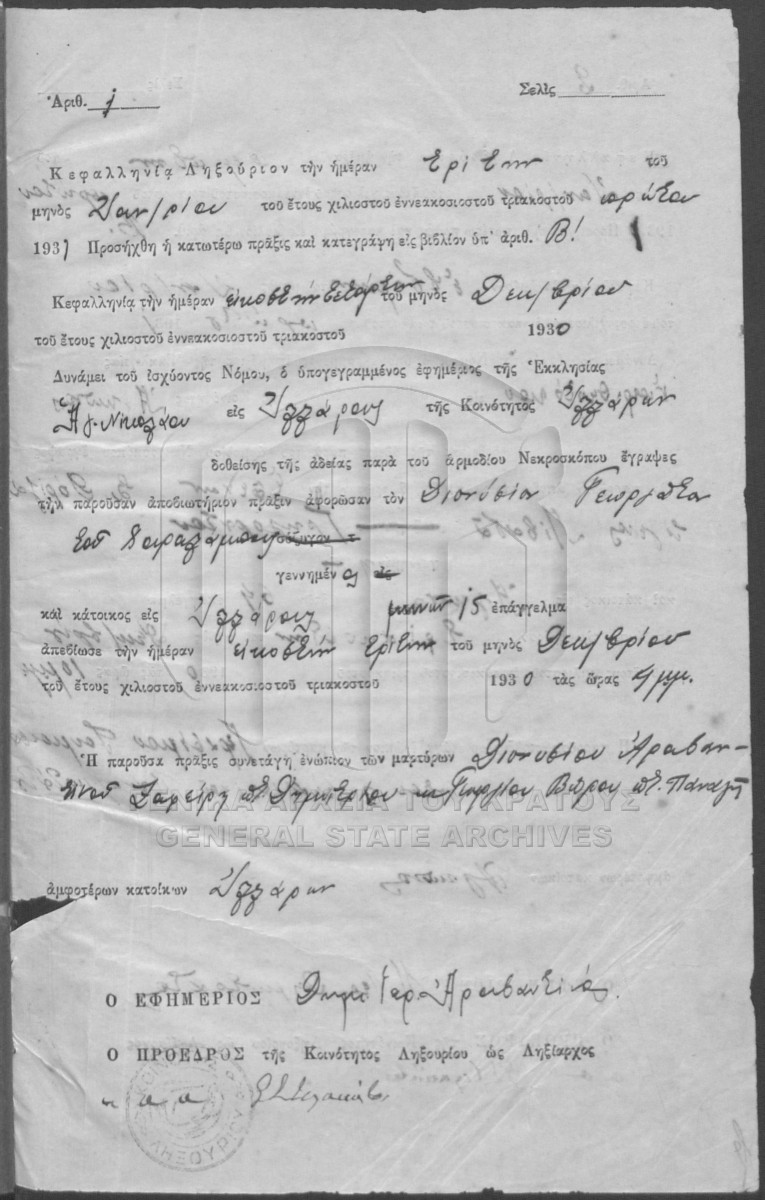 Ἀριθ. 1
Σελὶς
Κεφαλληνίᾳ Ληξούριον τὴν ἡμέραν τρίτην τοῦ
μηνὸς Ἰαν/ρίου τοῦ ἔτους χιλιοστοῦ ἐννεακοσιοστοῦ τριακοστοῦ πρώτου
1931 Προσήχθη ἡ κατωτέρω πρᾶξις καὶ κατεγράφη εἰς βιβλίον ὑπ' ἀριθ. Β! 1
Κεφαλληνίᾳ τὴν ἡμέραν εἰκοστὴν τετάρτην τοῦ μηνὸς Δεκ/βρίου
τοῦ ἔτους χιλιοστοῦ ἐννεακοσιοστοῦ τριακοστοῦ 1930
Δυνάμει τοῦ ἰσχύοντος Νόμου, ὁ ὑπογεγραμμένος ἐφημέριος τῆς Ἐκκλησίας
Ἁγ. Νικολάου εἰς τῆς Κοινότητος
δοθείσης τῆς ἀδείας παρὰ τοῦ ἁρμοδίου Νεκροσκόπου ἔγραψες
τὴν παροῦσαν ἀποδιωτήριον πρᾶξιν ἀφορῶσαν τὸν Διονύσιον
τοῦ Χαραλάμπους σύζυγον τ
γεννημέν ος εἰς
καὶ κάτοικος εἰς μηνῶν 15 ἐπάγγελμα
ἀπεβίωσε τὴν ἡμέραν εἰκοστὴν τρίτην τοῦ μηνὸς Δεκ/βρίου
τοῦ ἔτους χιλιοστοῦ ἐννεακοσιοστοῦ τριακοστοῦ 1930 τὰς ὥρας μμ.
Ἡ παροῦσα πρᾶξις συνετάγη ἐνώπιον τῶν μαρτύρων Διονυσίου Ἀραβαν-
τινοῦ Δημητρίου Γεωργίου Βώρου Παναγῆ
ΓΕΝΙΚΑ ΑΡΧΕΙΑ ΤΟΥ ΚΡΑΤΟΥΣ
GENERAL STATE ARCHIVES
ἀμφοτέρων κατοίκων
Ο ΕΦΗΜΕΡΙΟΣ Ἀραβαντινός
Ο ΠΡΟΕΔΡΟΣ τῆς Κοινότητος Ληξουρίου ὡς Ληξίαρχος